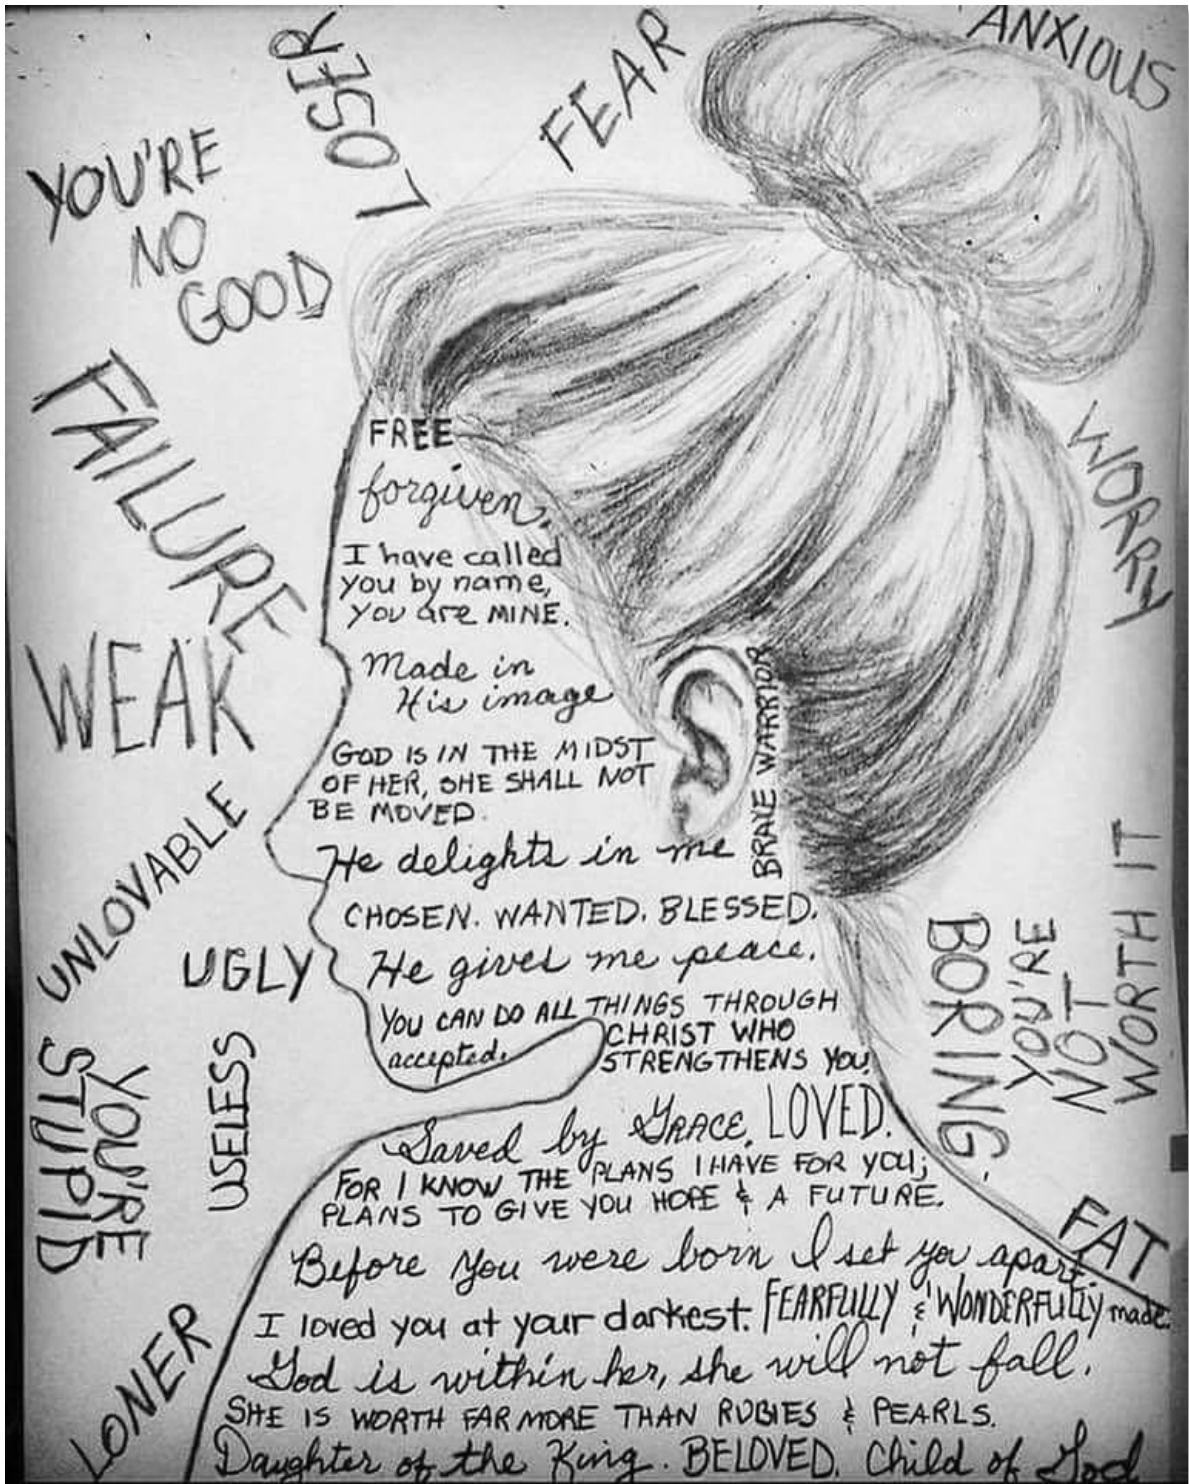 LOSER
FEAR
ANXIOUS
YOU'RE
NO
GOOD
FAILURE
WORRY
WEAK
UNLOVABLE
UGLY
USELESS
YOU'RE
STUPID
LONER
BORING
YOU'RE
NOT
WORTH IT
FAT
FREE
forgiven.
I have called
you by name,
you are MINE.
Made in
His image
GOD IS IN THE MIDST
OF HER, SHE SHALL NOT
BE MOVED.
BRAVE WARRIOR
He delights in me
CHOSEN. WANTED. BLESSED.
He gives me peace.
YOU CAN DO ALL THINGS THROUGH
CHRIST WHO
accepted.
STRENGTHENS YOU.
Saved by GRACE. LOVED.
FOR I KNOW THE PLANS I HAVE FOR YOU;
PLANS TO GIVE YOU HOPE & A FUTURE.
Before you were born I set you apart.
I loved you at your darkest. FEARFULLY & WONDERFULLY made.
God is within her, she will not fall.
SHE IS WORTH FAR MORE THAN RUBIES & PEARLS.
Daughter of the King. BELOVED. Child of God